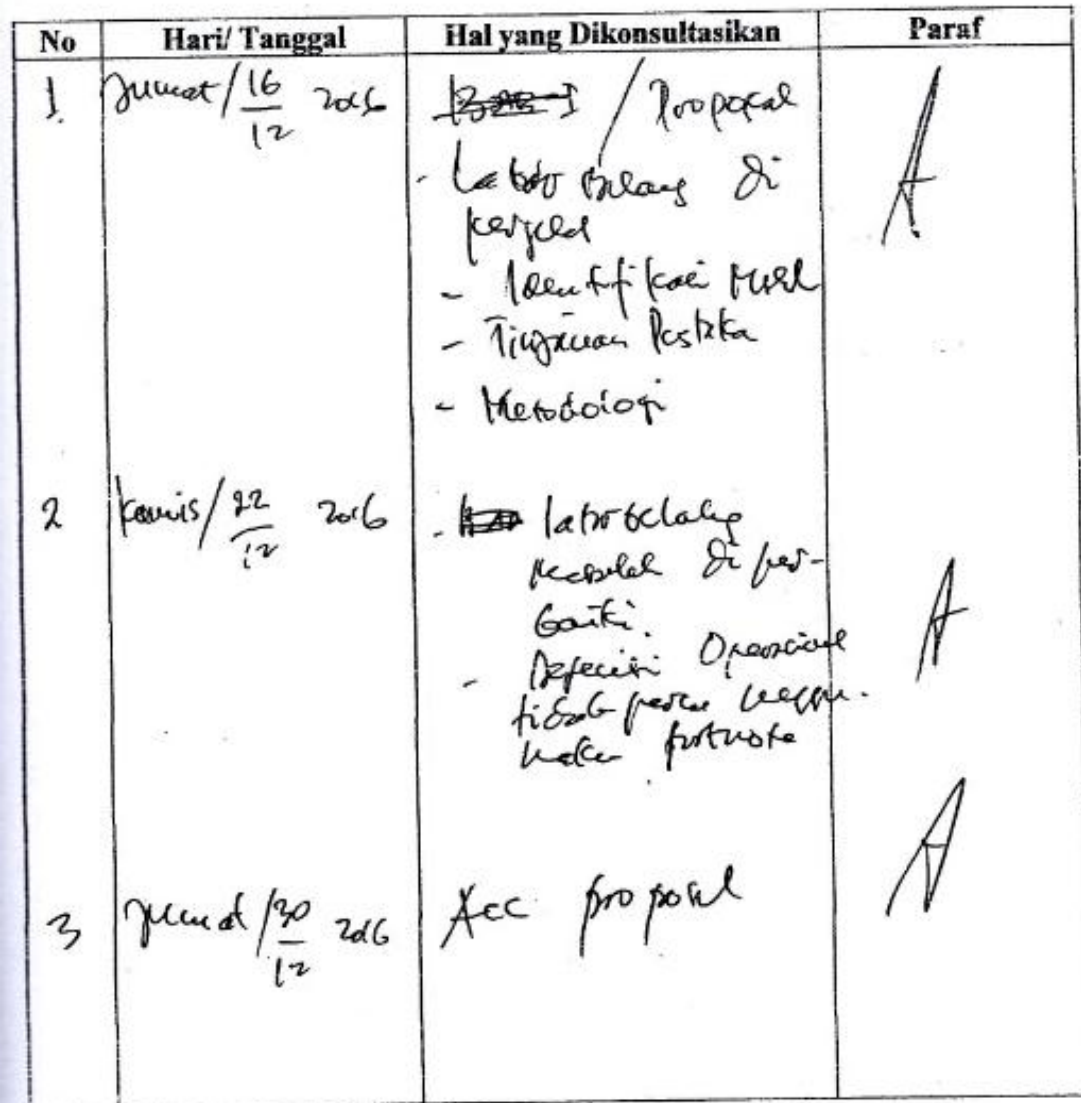 No Hari/ Tanggal Hal yang Dikonsultasikan Paraf
1. Jumat/16/12 2016 / Proposal
- Latar belakang di
perjelas
- Identifikasi Mslh
- Tinjauan Pustaka
- Metodologi
2 Kamis/22/12 2016 - latar belakang
masalah di per-
baiki.
- Definisi Operasional
tidak perlu menggu-
nakan footnote
3 Jumat/30/12 2016 Acc proposal